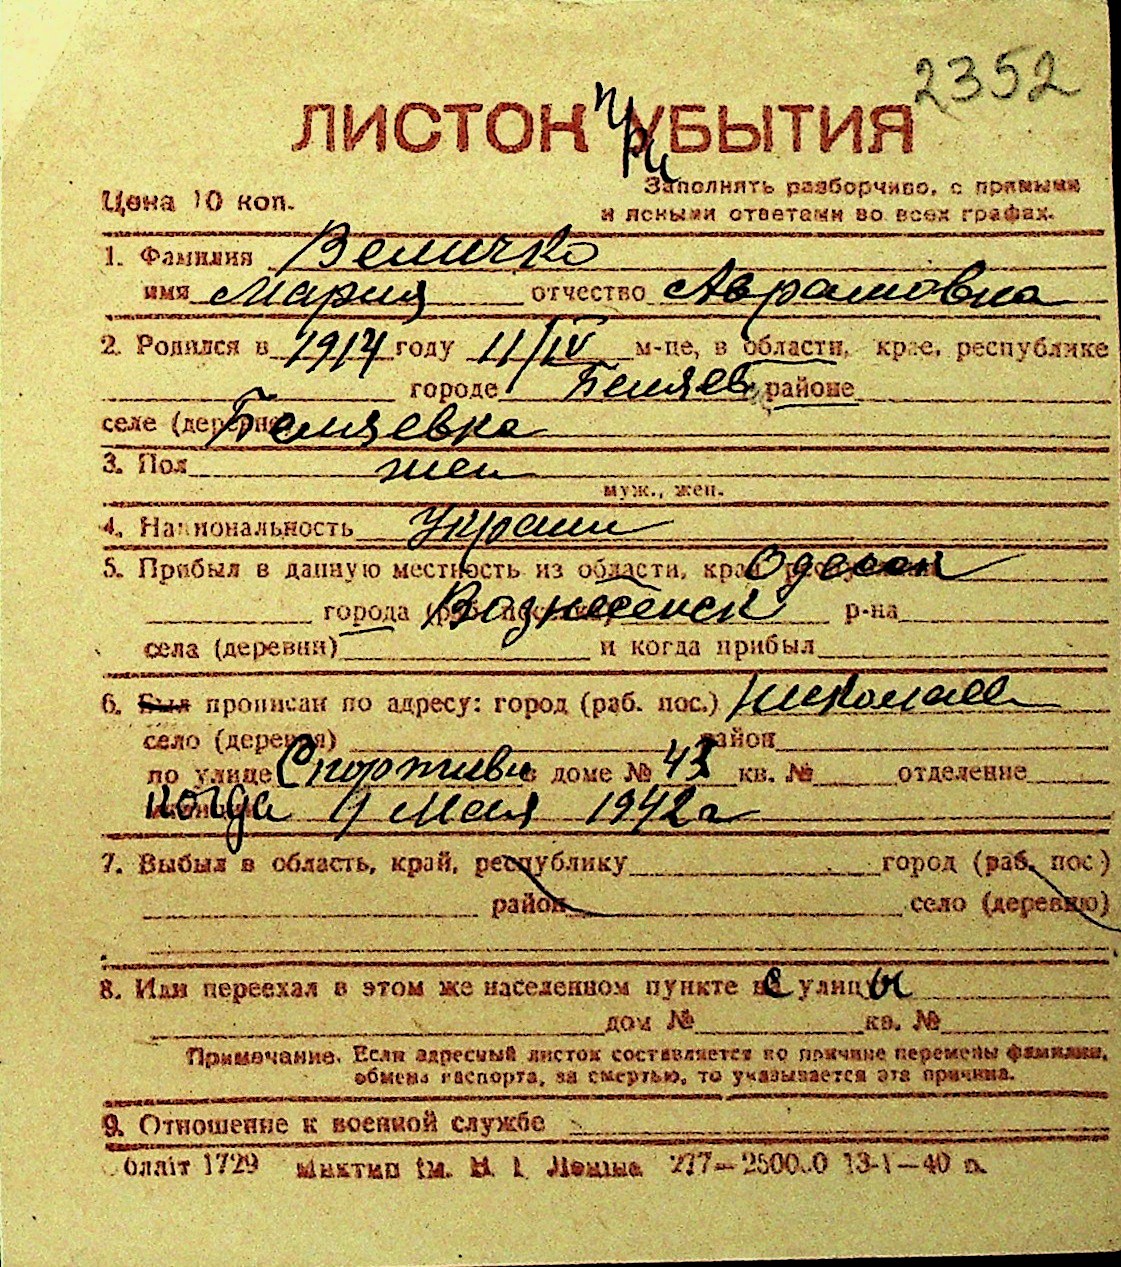 2352
ЛИСТОК при УБЫТИЯ
Цена 10 коп.
Заполнять разборчиво, с прямыми
и ясными ответами во всех графах.
1. Фамилия Величко
имя Мария отчество Аврамовна
2. Родился в 1914 году 11/IV м-це, в области, крае, республике
городе Беляев районе
селе (деревне) Беляевка
3. Пол жен
муж., жен.
4. Национальность Украин
5. Прибыл в данную местность из области, край Одесск
города Вознесенск р-на
села (деревни) и когда прибыл
6. Был прописан по адресу: город (раб. пос.) Николаев
село (деревня) район
по улице Спортивн в доме № 43 кв. № отделение
когда 9 Мая 1942 г
7. Выбыл в область, край, республику город (раб. пос.)
район село (деревню)
8. Или переехал в этом же населенном пункте с улицы
дом № кв. №
Примечание. Если адресный листок составляется по причине перемены фамилии,
обмена паспорта, за смертью, то указывается эта причина.
9. Отношение к военной службе
Облліт 1729 Миктип ім. В. І. Леніна 277— 13-V—40 р.